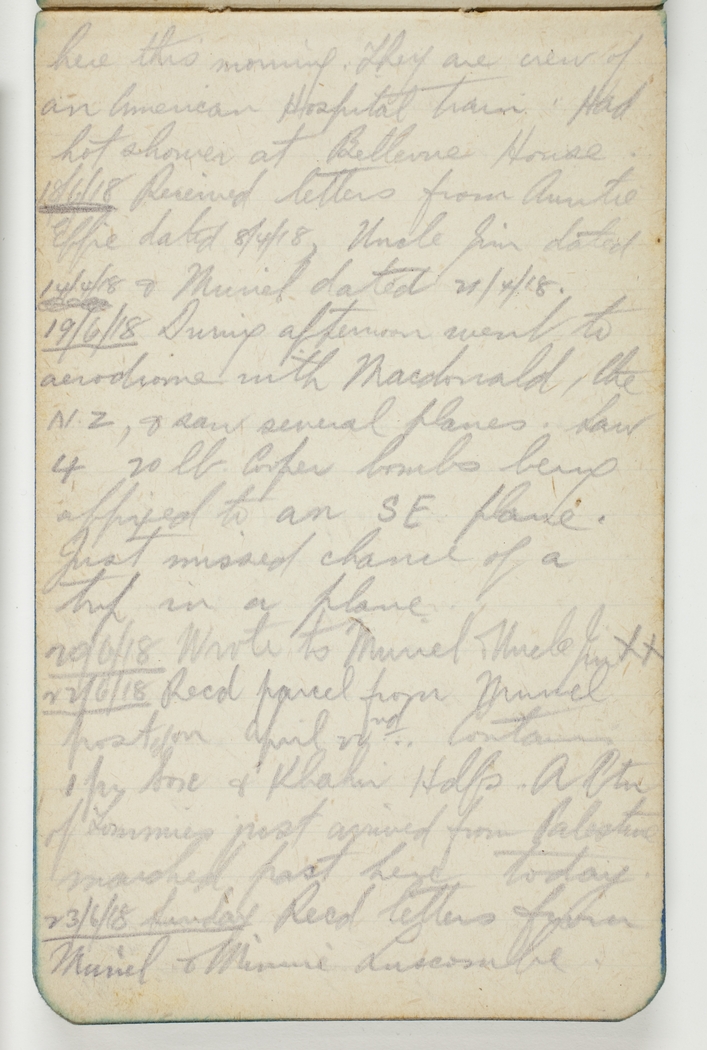 here this morning. They are crew of
an American Hospital train. Had
hot shower at Bellevue House.
18/6/18 Received letters from Auntie
Effie dated 8/4/18, Uncle Jim dated
14/4/18 & Muriel dated 21/4/18.
19/6/18 During afternoon went to
aerodrome with Macdonald, the
N.Z, & saw several planes. Saw
4 20 lb Cooper bombs being
affixed to an SE plane.
Just missed chance of a
trip in a plane.
20/6/18 Wrote to Muriel Uncle Jim XX
22/6/18 Recd parcel from Muriel
posted on April 22nd. Contains
1 pr &  Khaki Hdkfs. A
of Tommies just arrived from Palestine
marched past here today.
23/6/18 Sunday Recd letters from
Muriel & Minnie Luscombe.